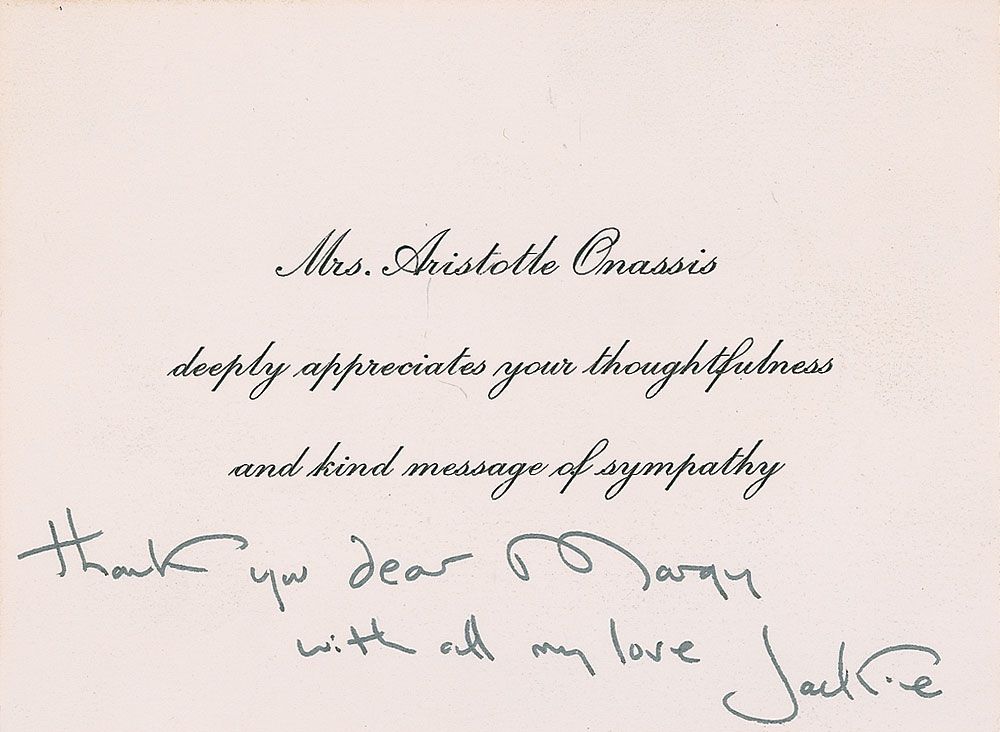 Mrs. Aristotle Onassis
deeply appreciates your thoughtfulness
and kind message of sympathy
Thank you dear Margy
with all my love
Jackie